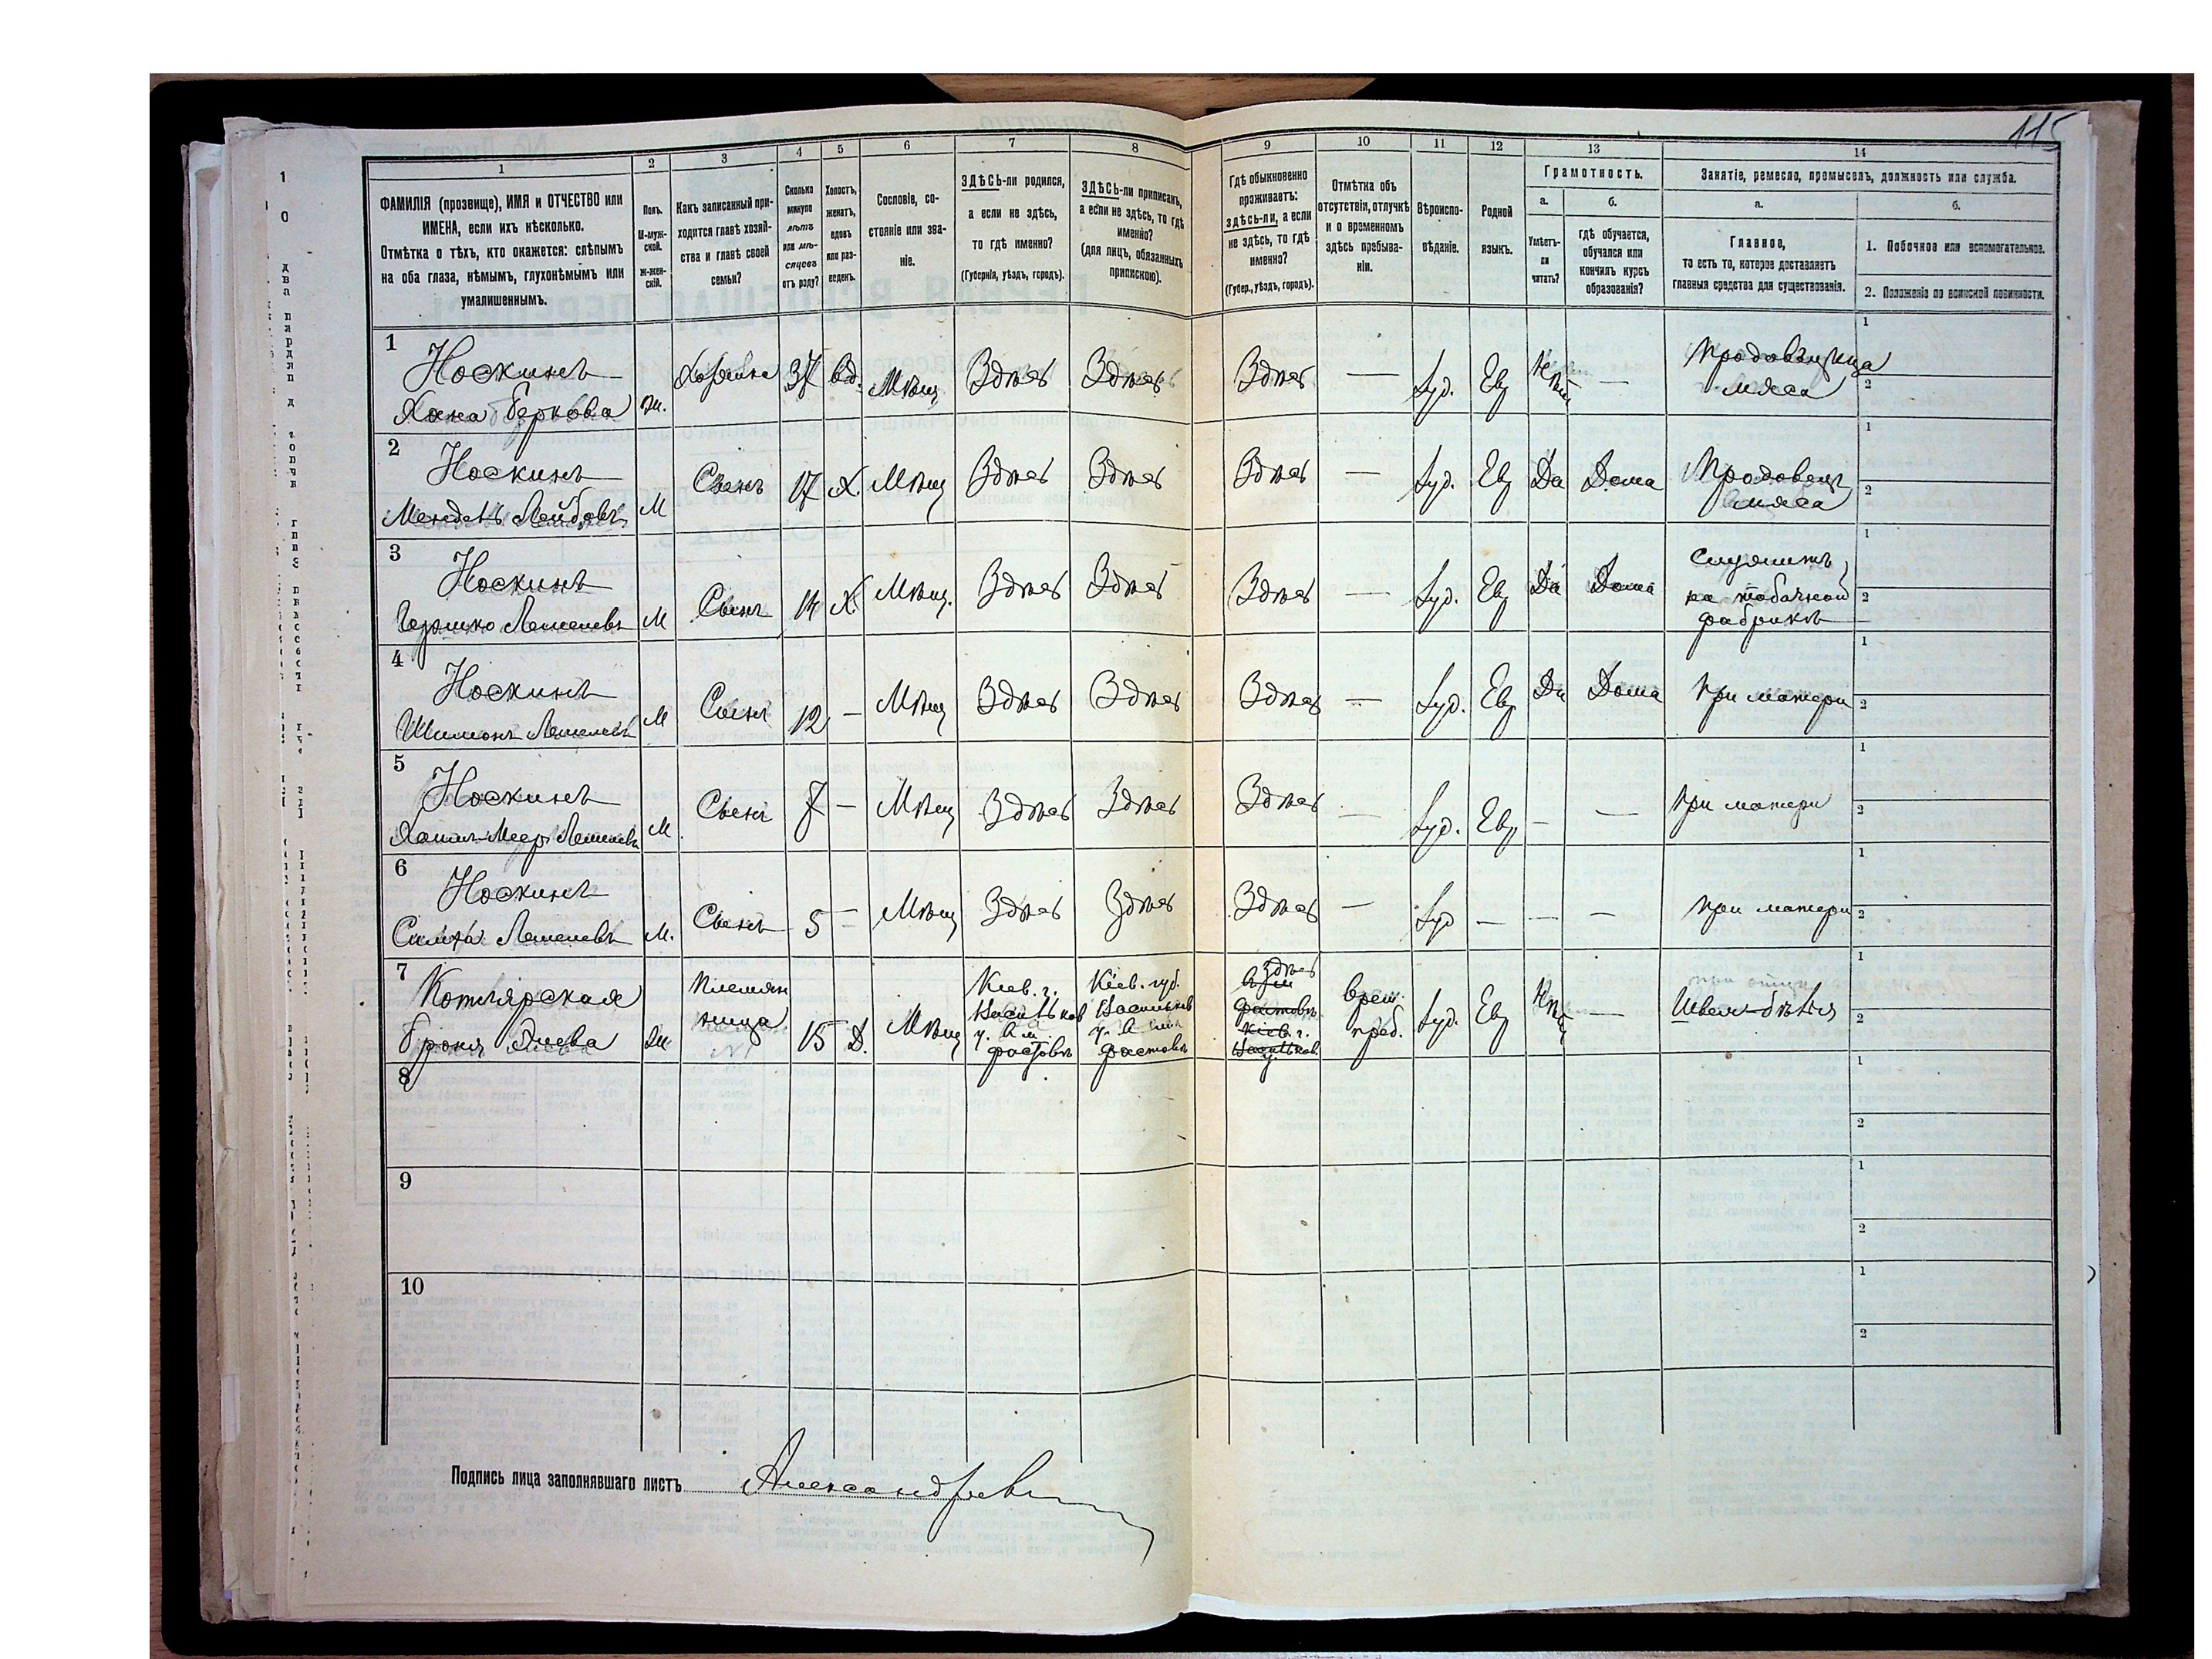 115
1 2 3 4 5 6 7 8 9 10 11 12 13 14
ФАМИЛІЯ (прозвище), ИМЯ и ОТЧЕСТВО или
ИМЕНА, если ихъ нѣсколько.
Отмѣтка о тѣхъ, кто окажется: слѣпымъ
на оба глаза, нѣмымъ, глухонѣмымъ или
умалишеннымъ.
Полъ.
М-муж-
ской.
ж-жен-
скій.
Какъ записанный при-
ходится главѣ хозяй-
ства и главѣ своей
семьи?
Сколько
минуло
лѣтъ
или мѣ-
сяцевъ
отъ роду?
Холостъ,
женатъ,
вдовъ
или раз-
веденъ.
Сословіе, со-
стояніе или зва-
ніе.
ЗДѢСЬ-ли родился,
а если не здѣсь,
то гдѣ именно?
(Губернія, уѣздъ, городъ).
ЗДѢСЬ-ли приписанъ,
а если не здѣсь, то гдѣ
именно?
(для лицъ, обязанныхъ
припискою).
Гдѣ обыкновенно
проживаетъ:
здѣсь-ли, а если
не здѣсь, то гдѣ
именно?
(Губер., уѣздъ, городъ).
Отмѣтка объ
отсутствіи, отлучкѣ
и о временномъ
здѣсь пребыва-
ніи.
Вѣроиспо-
вѣданіе.
Родной
языкъ.
Грамотность.
а.
Умѣетъ-
ли
читать?
б.
гдѣ обучается,
обучался или
кончилъ курсъ
образованія?
Занятіе, ремесло, промыселъ, должность или служба.
а.
Главное,
то есть то, которое доставляетъ
главныя средства для существованія.
б.
1. Побочное или вспомогательное.
2. Положеніе по воинской повинности.
1
Носкинъ
Хана Беркова ж. Хозяйка 37 вд. Мѣщ Здѣсь Здѣсь Здѣсь — Іуд. Евр Нѣтъ — Продавщица
мяса
1
2
2
Носкинъ
Мендель Лейбовъ М Сынъ 17 Х. Мѣщ Здѣсь Здѣсь Здѣсь — Іуд. Евр Да Дома Продавецъ
мяса
1
2
3
Носкинъ
Гершко М Сынъ 14 Х. Мѣщ. Здѣсь Здѣсь Здѣсь — Іуд. Евр Да Дома Служитъ
на табачной
фабрикѣ
1
2
4
Носкинъ
Шимонъ М Сынъ 12 — Мѣщ Здѣсь Здѣсь Здѣсь — Іуд. Евр Да Дома при матери
1
2
5
Носкинъ
Хаимъ-Меер М. Сынъ 7 — Мѣщ Здѣсь Здѣсь Здѣсь — Іуд. Евр — — при матери
1
2
6
Носкинъ
Симха М. Сынъ 5 — Мѣщ Здѣсь Здѣсь Здѣсь — Іуд — — — при матери
1
2
7
Котлярская
Броня ж Племян
ница 15 Д. Мѣщ
Кіев. г.
Васильков
у. в м
Фастовъ
Кіев. губ.
Васильков
у. в м
Фастовъ
Здѣсь
в м
Фастовъ
Кіев. г.
Васильков.
у.
врем.
преб. Іуд. Евр Нѣтъ — Швея-бѣлья
1
2
8
1
2
9
1
2
10
1
2
Подпись лица заполнявшаго листъ